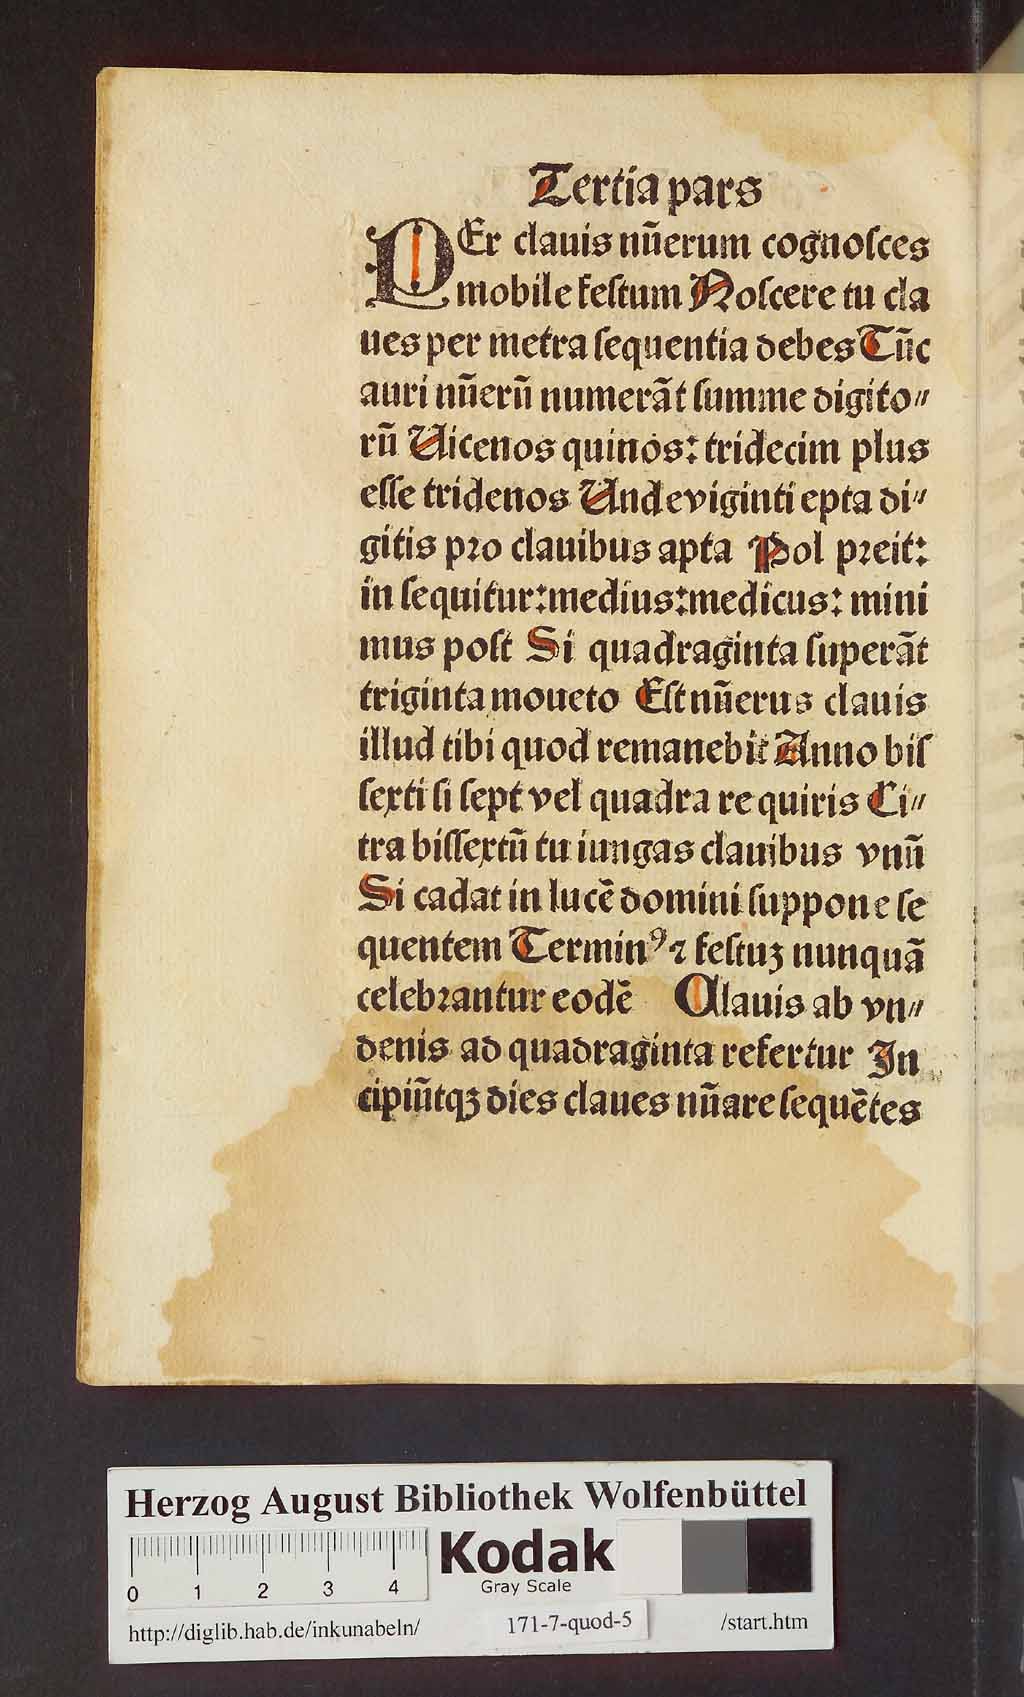 Tertia pars
PEr clauis nūerum cognoſces
mobile feſtum Noſcere tu cla
ues per metra ſequentia debes Tūc
auri nūerū numerāt ſumme digito⸗
rū Uicenos quinos: tridecim plus
eſſe tridenos Undeviginti epta di⸗
gitis pꝛo clauibus apta Pol pꝛeit:
in ſequitur:medius:medicus: mini
mus poſt Si quadraginta ſuperāt
triginta moueto Eſt nūerus clauis
illud tibi quod remanebit Anno biſ
ſexti ſi ſept vel quadra re quiris Ci⸗
tra biſſextū tu iungas clauibus vnū
Si cadat in lucē domini ſuppone ſe
quentem Terminꝰ ⁊ feſtuʒ nunquā
celebꝛantur eodē Clauis ab vn⸗
denis ad quadraginta refertur In
cipiūtqʒ dies claues nūare ſequētes
Herzog August Bibliothek Wolfenbüttel
0 1 2 3 4
Kodak
Gray Scale
http://diglib.hab.de/inkunabeln/ 171-7-quod-5 /start.htm